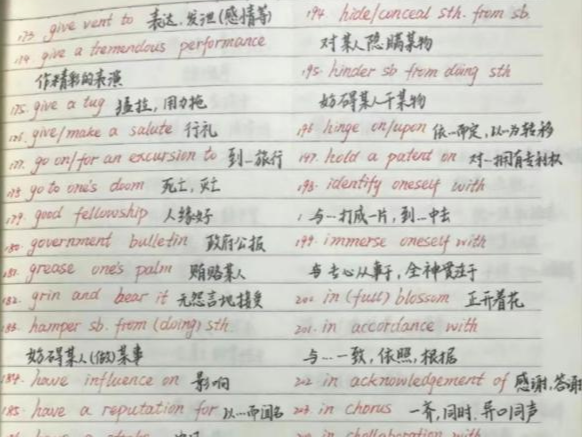 173. give vent to 表达,发泄(感情等)
174. give a tremendous performance
作精彩的表演
175. give a tug 猛拉,用力拖
176. give/make a salute 行礼
177. go on/for an excursion to 到…旅行
178. go to one's doom 死亡,灭亡
179. good fellowship 人缘好
180. government bulletin 政府公报
181. grease one's palm 贿赂某人
182. grin and bear it 无怨言地接受
183. hamper sb. from (doing) sth
妨碍某人(做)某事
184. have influence on 影响
185. have a reputation for 以…而闻名
194. hide/conceal sth. from sb.
对某人隐瞒某物
195. hinder sb from doing sth
妨碍某人干某物
196. hinge on/upon 依…而定,以…为转移
197. hold a patent on 对…拥有专利权
198. identify oneself with
与…打成一片,到…中去
199. immerse oneself with
与专心从事于,全神贯注于
200. in (full) blossom 正开着花
201. in accordance with
与…一致,依照,根据
202. in acknowledgement of 感谢,答谢
203. in chorus 一齐,同时,异口同声